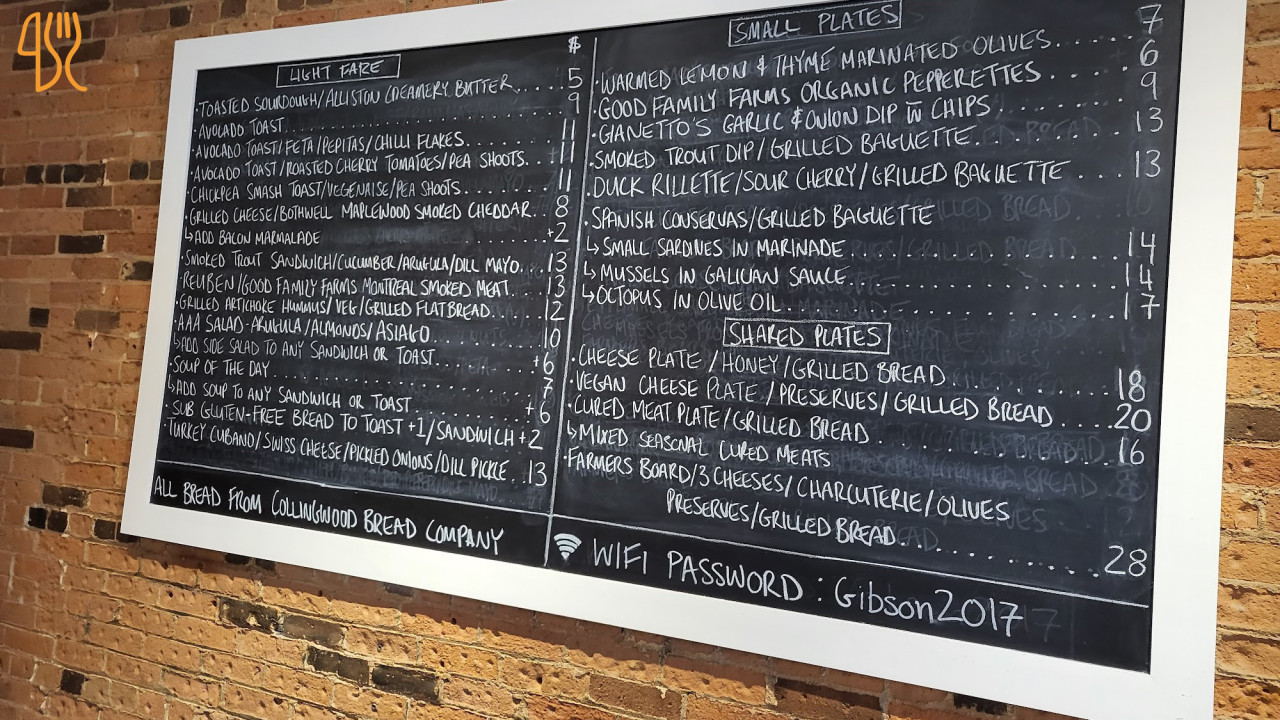 LIGHT FARE
$
·TOASTED SOURDOUGH/ALLISTON CREAMERY BUTTER.....5
·AVOCADO TOAST......9
·AVOCADO TOAST/FETA/PEPITAS/CHILLI FLAKES......11
·AVOCADO TOAST/ROASTED CHERRY TOMATOES/PEA SHOOTS...11
·CHICKPEA SMASH TOAST/VEGENAISE/PEA SHOOTS.......11
·GRILLED CHEESE/BOTHWELL MAPLEWOOD SMOKED CHEDDAR..8
↳ADD BACON MARMALADE......+2
·SMOKED TROUT SANDWICH/CUCUMBER/ARUGULA/DILL MAYO..13
·REUBEN/GOOD FAMILY FARMS MONTREAL SMOKED MEAT..13
·GRILLED ARTICHOKE HUMMUS/VEG/GRILLED FLATBREAD....12
·AAA SALAD-ARUGULA/ALMONDS/ASIAGO......10
↳ADD SIDE SALAD TO ANY SANDWICH OR TOAST......+6
·SOUP OF THE DAY......7
↳ADD SOUP TO ANY SANDWICH OR TOAST......+6
·SUB GLUTEN-FREE BREAD TO TOAST +1/SANDWICH +2
·TURKEY CUBANO/SWISS CHEESE/PICKLED ONIONS/DILL PICKLE..13
ALL BREAD FROM COLLINGWOOD BREAD COMPANY
SMALL PLATES
·WARMED LEMON & THYME MARINATED OLIVES......7
·GOOD FAMILY FARMS ORGANIC PEPPERETTES......6
·GIANETTO'S GARLIC & ONION DIP W̄ CHIPS......9
·SMOKED TROUT DIP/GRILLED BAGUETTE......13
·DUCK RILLETTE/SOUR CHERRY/GRILLED BAGUETTE...13
·SPANISH CONSERVAS/GRILLED BAGUETTE
↳SMALL SARDINES IN MARINADE......14
↳MUSSELS IN GALICIAN SAUCE......14
↳OCTOPUS IN OLIVE OIL......17
SHARED PLATES
·CHEESE PLATE/HONEY/GRILLED BREAD......18
·VEGAN CHEESE PLATE/PRESERVES/GRILLED BREAD....20
·CURED MEAT PLATE/GRILLED BREAD......16
↳MIXED SEASONAL CURED MEATS
·FARMERS BOARD/3 CHEESES/CHARCUTERIE/OLIVES
PRESERVES/GRILLED BREAD......28
WIFI PASSWORD: Gibson2017